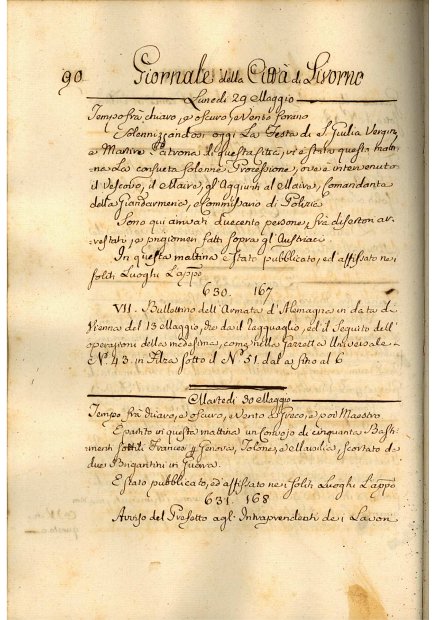 90 Giornale della Città di Livorno
Lunedi 29 Maggio
Tempo frà chiaro, e oscuro, e Vento forano
Solennizzandosi oggi La Festa di S. Giulia Vergine,
e Martire Patrona di questa Città, vi è stata questa matti-
na La consueta solenne Processione, ove è intervenuto
il Vescovo, il Maire, gl'Aggiunti al Maire, Comandante
della Giandarmeria, e Comissario di Polizia
Sono qui arrivati duecento persone, frà disertori ar-
restati, e prigionieri fatti sopra gl'Austriaci
In questa mattina è Stato pubblicato, ed affissato nei
soliti Luoghi L'appo
630 167
VII. Bullettino dell'Armata d'Alemagna in data di
Vienna del 13 Maggio, che dà il ragguaglio, ed il Seguito dell'
operazioni della medesima, come nella Gazzetta Universale
N.º 43. in Filza sotto il N.º 51. dal a
al 6
Martedi 30 Maggio
Tempo frà chiaro, e oscuro, e Vento a Greco, e poi Maestro
È partito in questa mattina un Convojo di cinquanta Basti-
menti sottili Francesi p Genova, Tolone, e Marsilia, scortato da
due Brigantini in Guerra.
È stato pubblicato, ed affissato nei soliti Luoghi L'appo
631. 168
Avviso del Prefetto agl'Intraprendenti dei Lavori